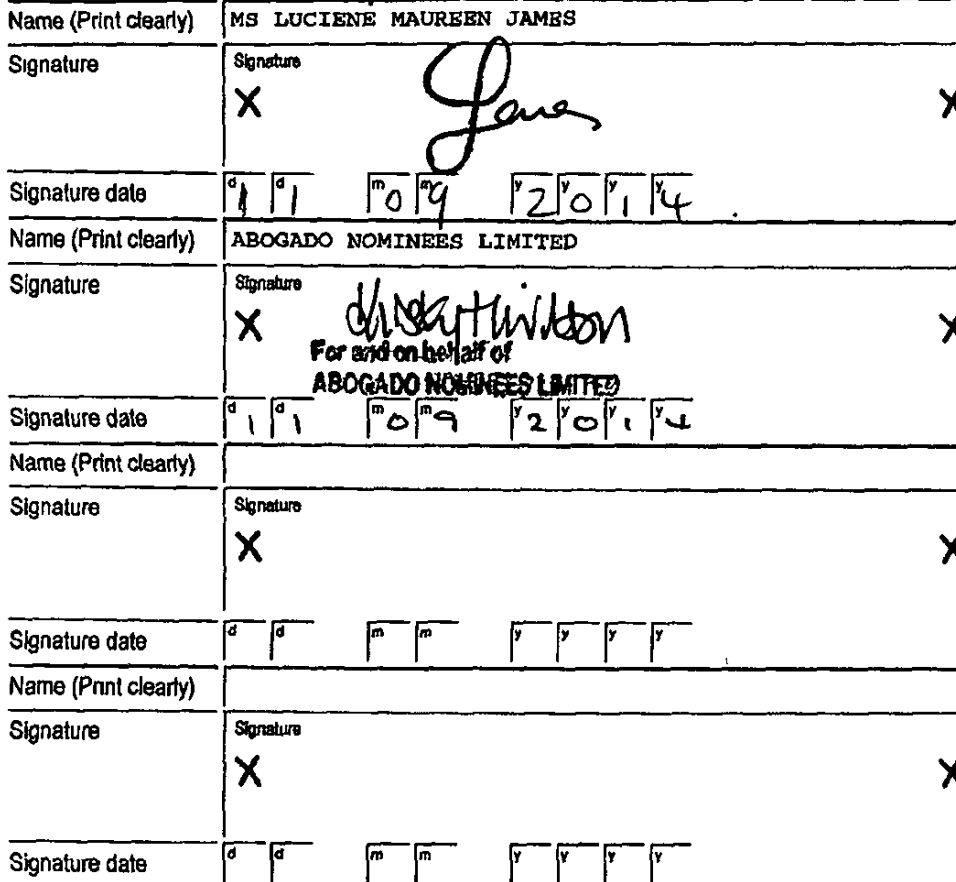 Name (Print clearly) MS LUCIENE MAUREEN JAMES
Signature Signature
X X
Signature date d1 d1 m0 m9 y2 y0 y1 y4
Name (Print clearly) ABOGADO NOMINEES LIMITED
Signature Signature
X X
For and on behalf of
ABOGADO NOMINEES LIMITED
Signature date d1 d1 m0 m9 y2 y0 y1 y4
Name (Print clearly)
Signature Signature
X X
Signature date d d m m y y y y
Name (Print clearly)
Signature Signature
X X
Signature date d d m m y y y y